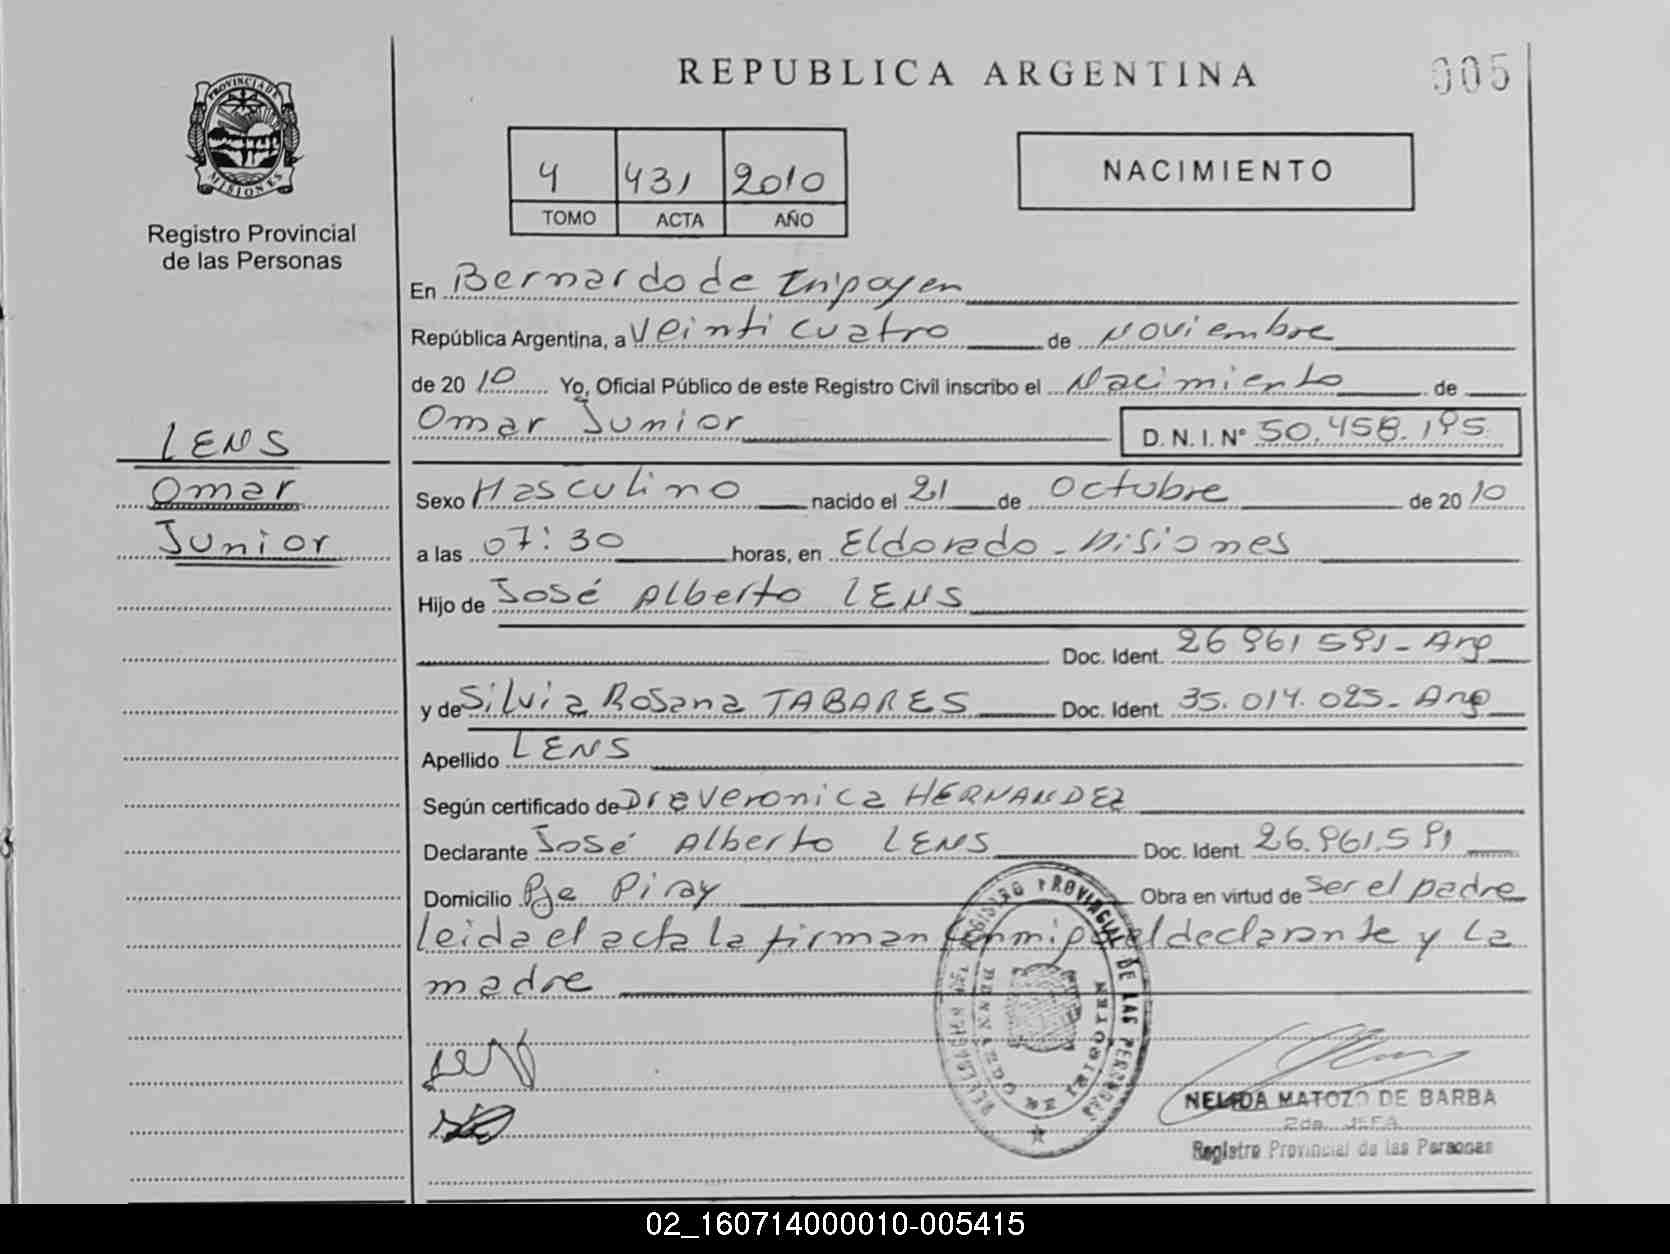 REPUBLICA ARGENTINA
005
PROVINCIA DE MISIONES
Registro Provincial
de las Personas
4 431 2010
TOMO ACTA AÑO
NACIMIENTO
En Bernardo de Irigoyen
República Argentina, a Veinticuatro de Noviembre
de 2010 Yo, Oficial Público de este Registro Civil inscribo el Nacimiento de
Omar Junior D.N.I.Nº 50.458.195
LENS
Omar
Junior
Sexo Masculino nacido el 21 de Octubre de 2010
a las 07:30 horas, en Eldorado - Misiones
Hijo de José Alberto LENS
Doc. Ident. 26 961 591 - Arg
y de Silvia Rosana TABARES Doc. Ident. 35.014.025 - Arg
Apellido LENS
Según certificado de Dra Veronica HERNANDEZ
Declarante José Alberto LENS Doc. Ident. 26.961.591
Domicilio Pje Piray Obra en virtud de ser el padre
Leida el acta la firman conmigo el declarante y la
madre
REGISTRO PROVINCIAL DE LAS PERSONAS
NELIDA MATOZO DE BARBA
2da. JEFA
Registro Provincial de las Personas
02_160714000010-005415